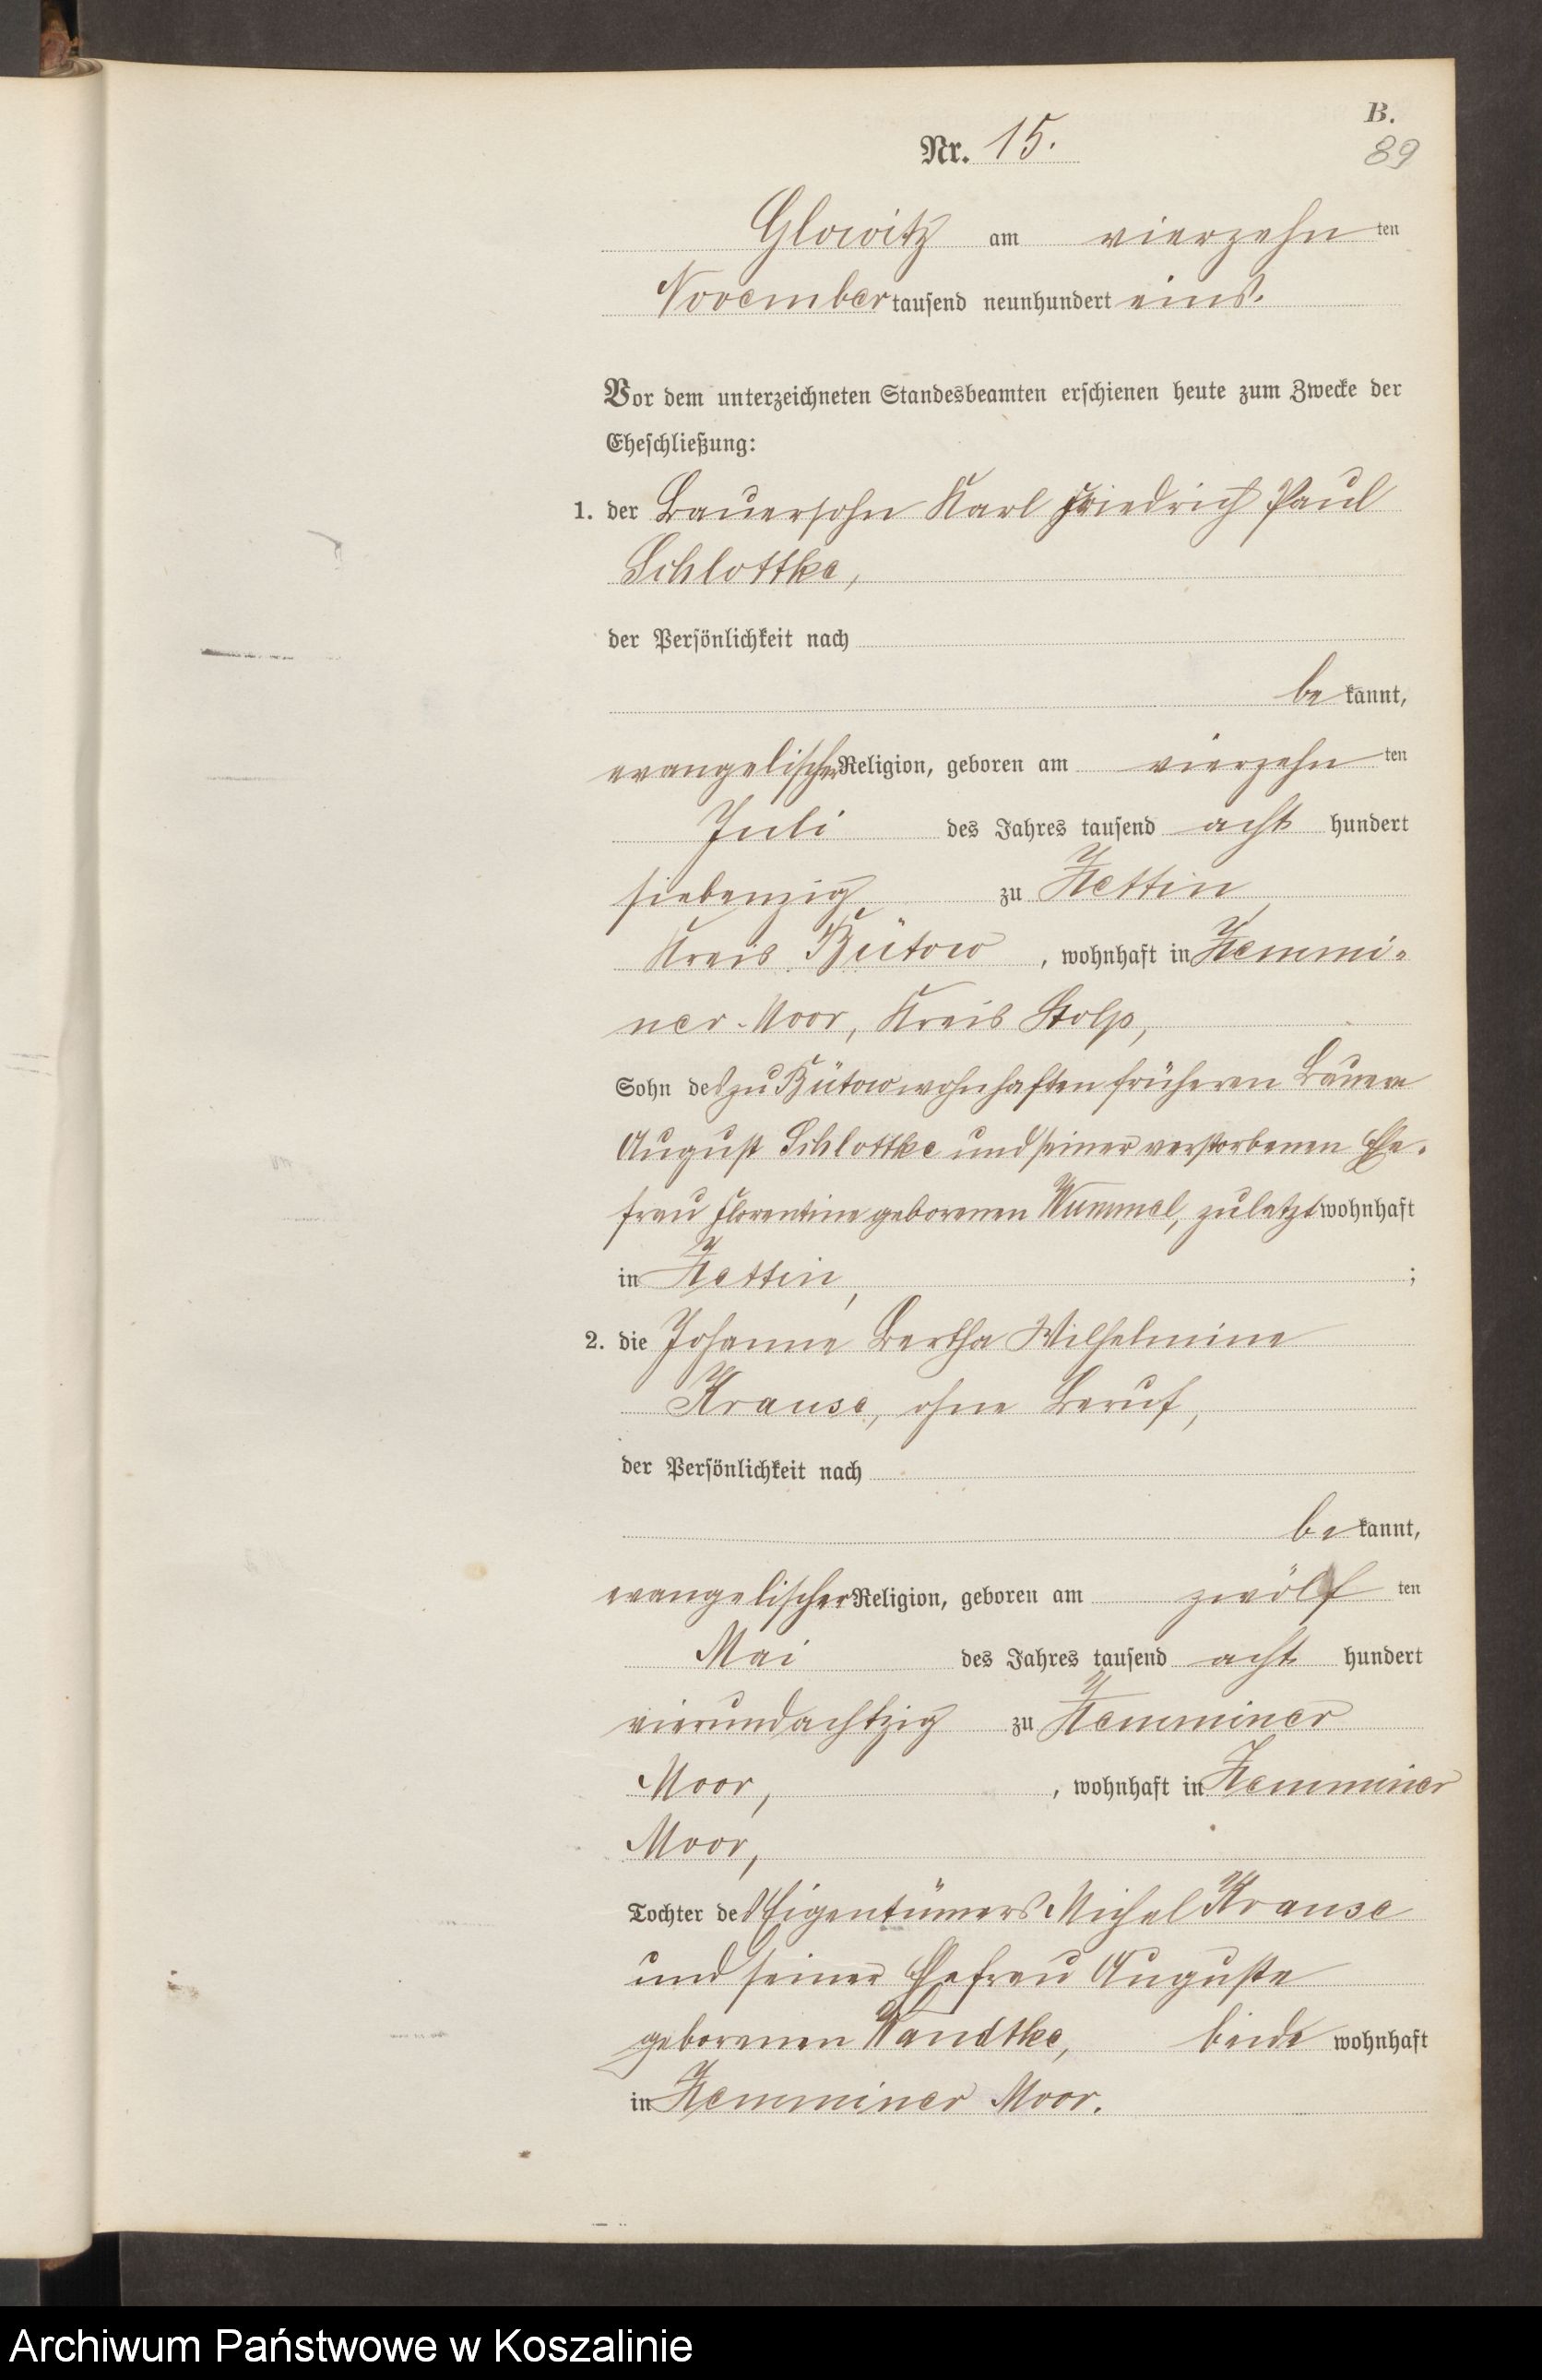 B.
Nr. 15.
89
Glowitz am vierzehn ten
November tausend neunhundert eins.
Vor dem unterzeichneten Standesbeamten erschienen heute zum Zwecke der
Eheschließung:
1. der Bauersohn Karl Friedrich Paul
Schlottke,
der Persönlichkeit nach
be kannt,
evangelischer Religion, geboren am vierzehn ten
Juli des Jahres tausend acht hundert
siebenzig zu Zettin
Kreis Bütow, wohnhaft in Zemmi-
ner-Moor, Kreis Stolp,
Sohn des zu Bütow wohnhaften früheren Bauern
August Schlottke und seiner verstorbenen Ehe-
frau Florentine geborenen zuletzt wohnhaft
in Zettin, ;
2. die Johanne Bertha Wilhelmine
Krause, ohne Beruf,
der Persönlichkeit nach
be kannt,
evangelischer Religion, geboren am zwölf ten
Mai des Jahres tausend acht hundert
vierundachtzig zu Zemminer
Moor, , wohnhaft in Zemminer
Moor,
Tochter des Eigentümers Michel Krause
und seiner Ehefrau Auguste
geborenen beide wohnhaft
in Zemminer Moor.
Archiwum Państwowe w Koszalinie